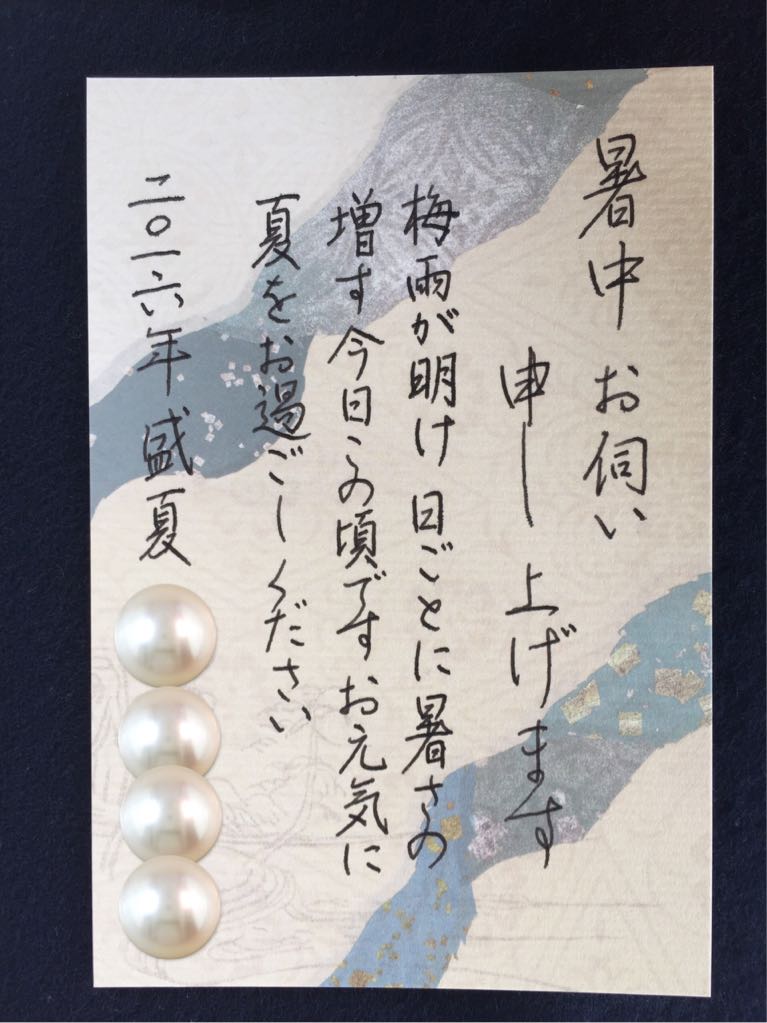 暑中お伺い
申し上げます
梅雨が明け日ごとに暑さの
増す今日この頃ですお元気に
夏をお過ごしください
二〇一六年盛夏